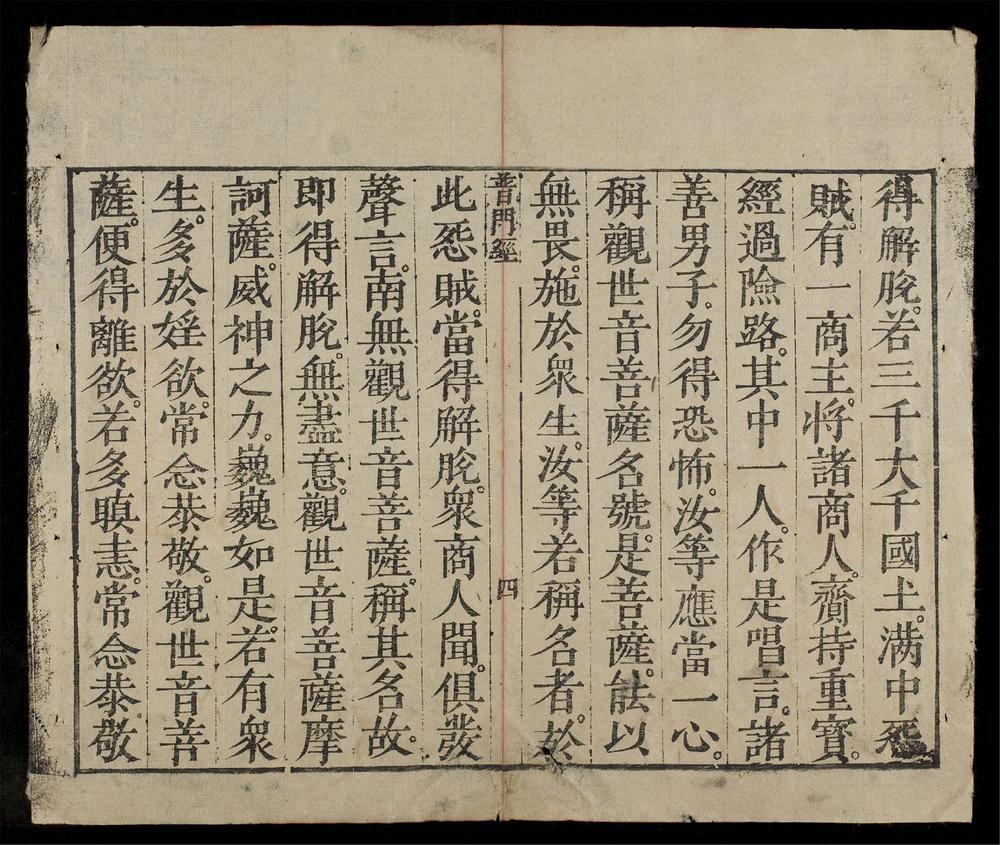 得解脫。若三千大千國土。滿中怨
賊。有一商主。將諸商人。齎持重寳。
經過險路。其中一人。作是唱言。諸
善男子。勿得恐怖。汝等應當一心。
稱觀世音菩薩名號。是菩薩。能以
無畏。施於眾生。汝等若稱名者。於
普門經 四
此怨賊。當得解脫。眾商人聞。俱發
聲言。南無觀世音菩薩。稱其名故。
即得解脫。無盡意。觀世音菩薩摩
訶薩。威神之力。巍巍如是。若有眾
生。多於婬欲。常念恭敬。觀世音菩
薩。便得離欲。若多瞋恚。常念恭敬